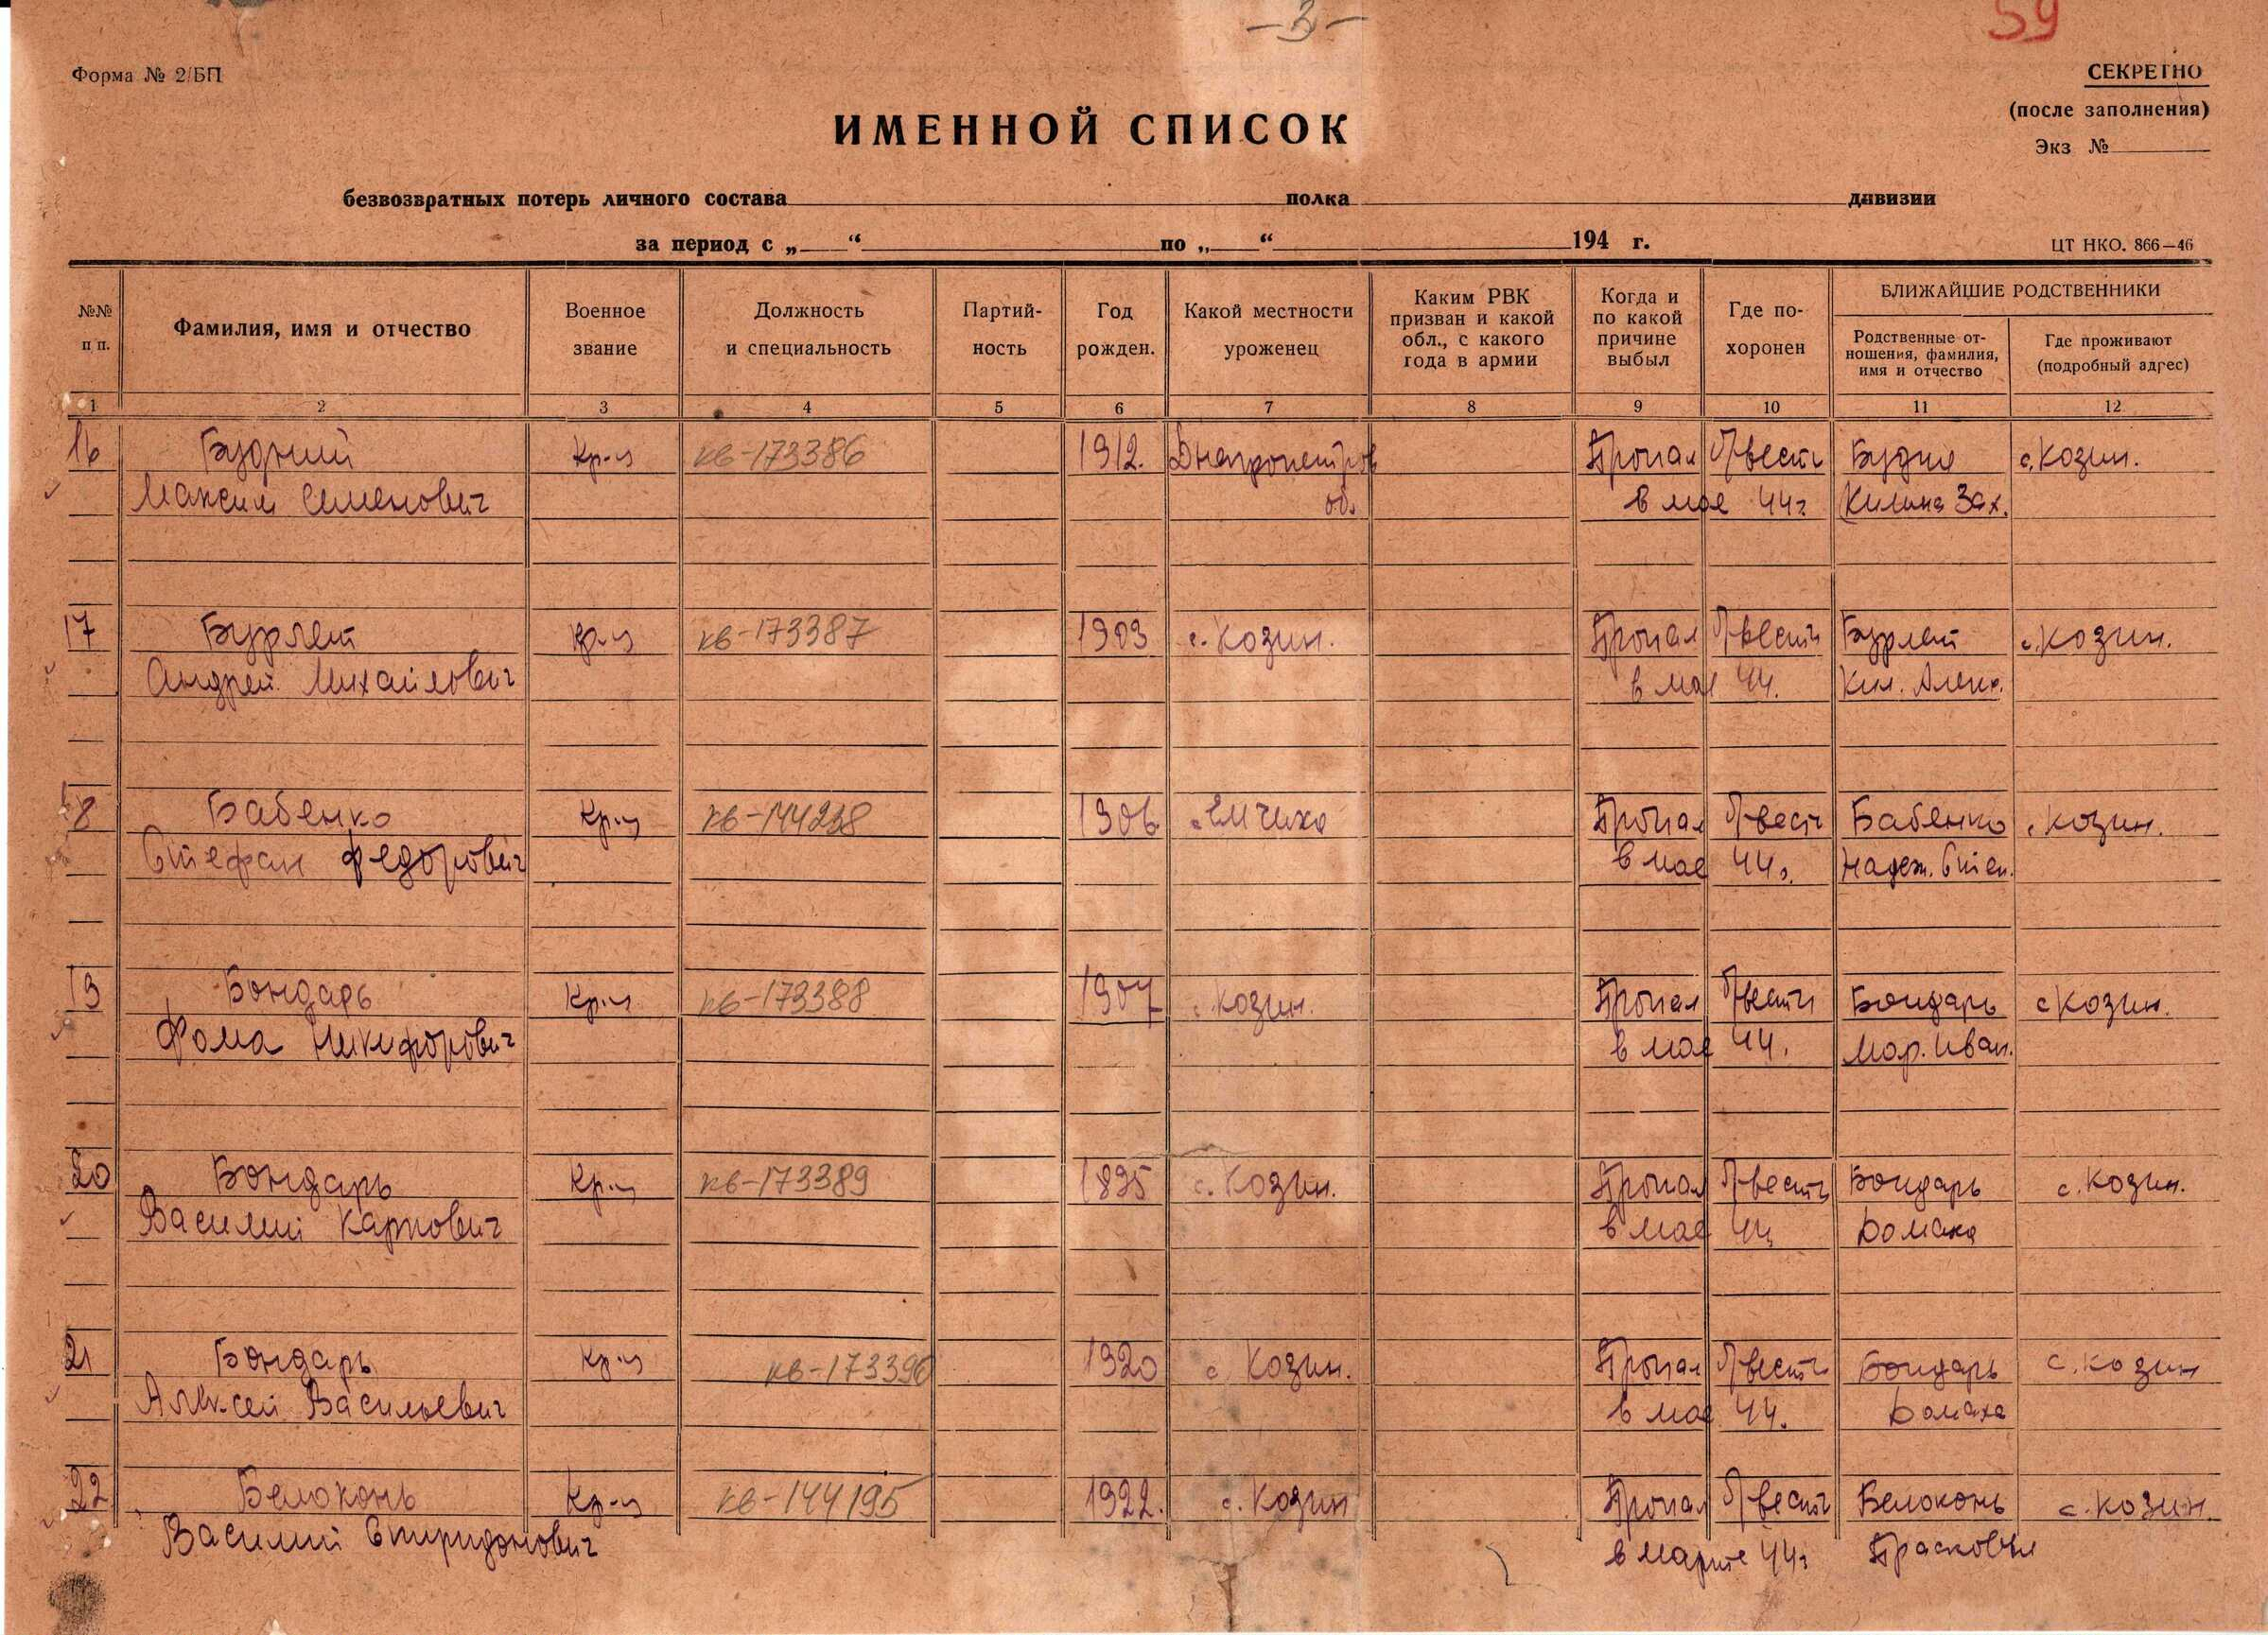 - 3 -
59
Форма № 2/БП
СЕКРЕТНО
(после заполнения)
Экз №
ИМЕННОЙ СПИСОК
безвозвратных потерь личного состава полка дивизии
за период с „ “ по „ “ 194 г.
ЦТ НКО. 866—46
№№ п/п.
Фамилия, имя и отчество
Военное звание
Должность и специальность
Партий-ность
Год рожден.
Какой местности уроженец
Каким РВК призван и какой обл., с какого года в армии
Когда и по какой причине выбыл
Где по-хоронен
БЛИЖАЙШИЕ РОДСТВЕННИКИ
Родственные от-ношения, фамилия, имя и отчество
Где проживают (подробный адрес)
1 2 3 4 5 6 7 8 9 10 11 12
16 Будний Кр-ц кв-173386 1912. Днепропетров Пропал б/вест Будня с. Козин.
Максим Семенович об. в мае 44г Килина Зах.
17 Бурлет кр-ц кв-173387 1903 с. Козин. Пропал б/вест Бурлет с. Козин.
Андрей Михайлович в мае 44. Кил. Алекс.
18 Бабенко Кр-ц кв-144238 1906 Емчиха Пропал б/вест Бабенко с. Козин.
Стефан Федорович в мае 44г. Надеж. Степ.
19 Бондарь Кр-ц кв-173388 1907 с. Козин. Пропал б/вест Бондарь с Козин.
Фома Никифорович в мае 44. Мар. Иван.
20 Бондарь Кр-ц кв-173389 1895 с. Козин. Пропал б/вест Бондарь с. Козин.
Василий Карпович в мае 44. Домаха
21 Бондарь Кр-ц кв-173390 1920 с Козин. Пропал б/вест Бондарь с. Козин
Алексей Васильевич в мае 44. Домаха
22 Белоконь Кр-ц кв-144195 1922. с. Козин Пропал б/вест Белоконь с. Козин.
Василий Спиридонович в марте 44г Прасковья